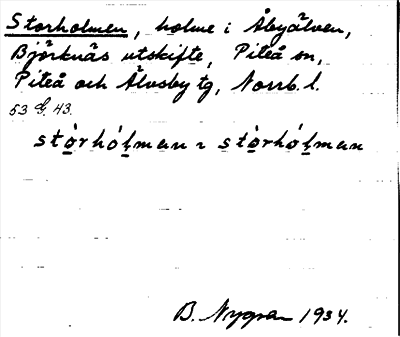 Storholmen, holme i Åbyälven,
Björknäs utskifte, Piteå sn,
Piteå och Älvsby tg, Norrb. l.
53 G. 43.
stòrhólman ~ stòrhólman
B. Nygren 1934.